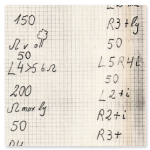 150
Ω v oll
50
L4>5 b Ω
200
Ω max lg
50
R3+lg
50
L5R4i
50
L2+i
R2+i
R3+